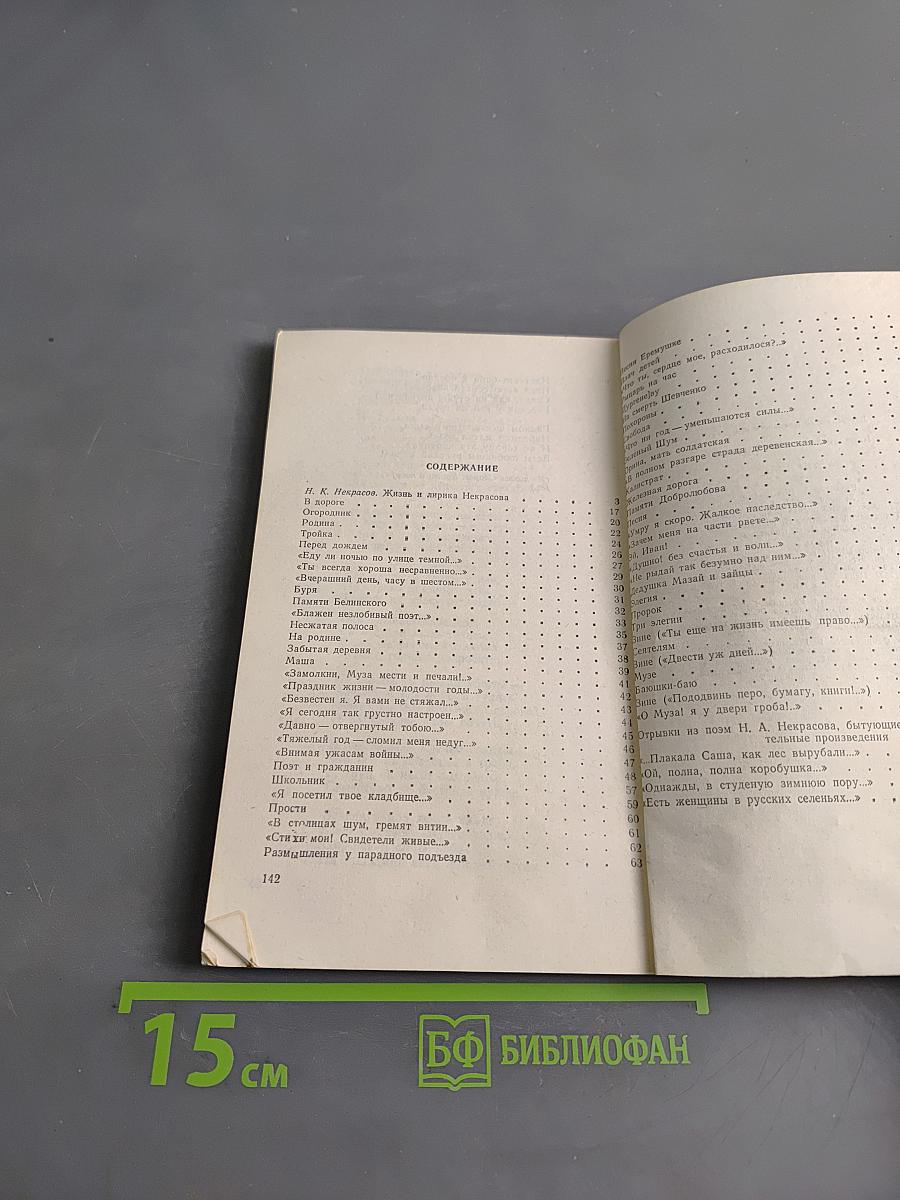 СОДЕРЖАНИЕ
Н. К. Некрасов. Жизнь и лирика Некрасова . . . 3
В дороге . . . 17
Огородник . . . 20
Родина . . . 22
Тройка . . . 24
Перед дождем . . . 26
«Еду ли ночью по улице темной...» . . . 27
«Ты всегда хороша несравненно...» . . . 29
«Вчерашний день, часу в шестом...» . . . 30
Буря . . . 31
Памяти Белинского . . . 32
«Блажен незлобивый поэт...» . . . 33
Несжатая полоса . . . 35
На родине . . . 37
Забытая деревня . . . 38
Маша . . . 39
«Замолкни, Муза мести и печали!..» . . . 41
«Праздник жизни — молодости годы...» . . . 42
«Безвестен я. Я вами не стяжал...» . . . 43
«Я сегодня так грустно настроен...» . . . 44
«Давно — отвергнутый тобою...» . . . 45
«Тяжелый год — сломил меня недуг...» . . . 46
«Внимая ужасам войны...» . . . 47
Поэт и гражданин . . . 48
Школьник . . . 57
«Я посетил твое кладбище...» . . . 59
Прости . . . 60
«В столицах шум, гремят витии...» . . . 61
«Стихи мои! Свидетели живые...» . . . 62
Размышления у парадного подъезда . . . 63
142
Еремушке
детей
ты, сердце мое, расходилося?..»
на час
смерть Шевченко
Похороны
Свобода
«Что ни год — уменьшаются силы...»
Зеленый Шум
Орина, мать солдатская
«В полном разгаре страда деревенская...»
Калистрат
Железная дорога
Памяти Добролюбова
Песня
«Умру я скоро. Жалкое наследство...»
«Зачем меня на части рвете...»
Эй, Иван!
«Душно! без счастья и воли...»
«Не рыдай так безумно над ним...»
Дедушка Мазай и зайцы
Элегия
Пророк
Три элегии
Зине («Ты еще на жизнь имеешь право...»)
Сеятелям
Зине («Двести уж дней...»)
Музе
Баюшки-баю
Зине («Пододвинь перо, бумагу, книги!..»)
«О Муза! я у двери гроба!..»
Отрывки из поэм Н. А. Некрасова, бытующие
тельные произведения
«...Плакала Саша, как лес вырубали...»
«Ой, полна, полна коробушка...»
«Однажды, в студеную зимнюю пору...»
«Есть женщины в русских селеньях...»
15 см
БФ БИБЛИОФАН